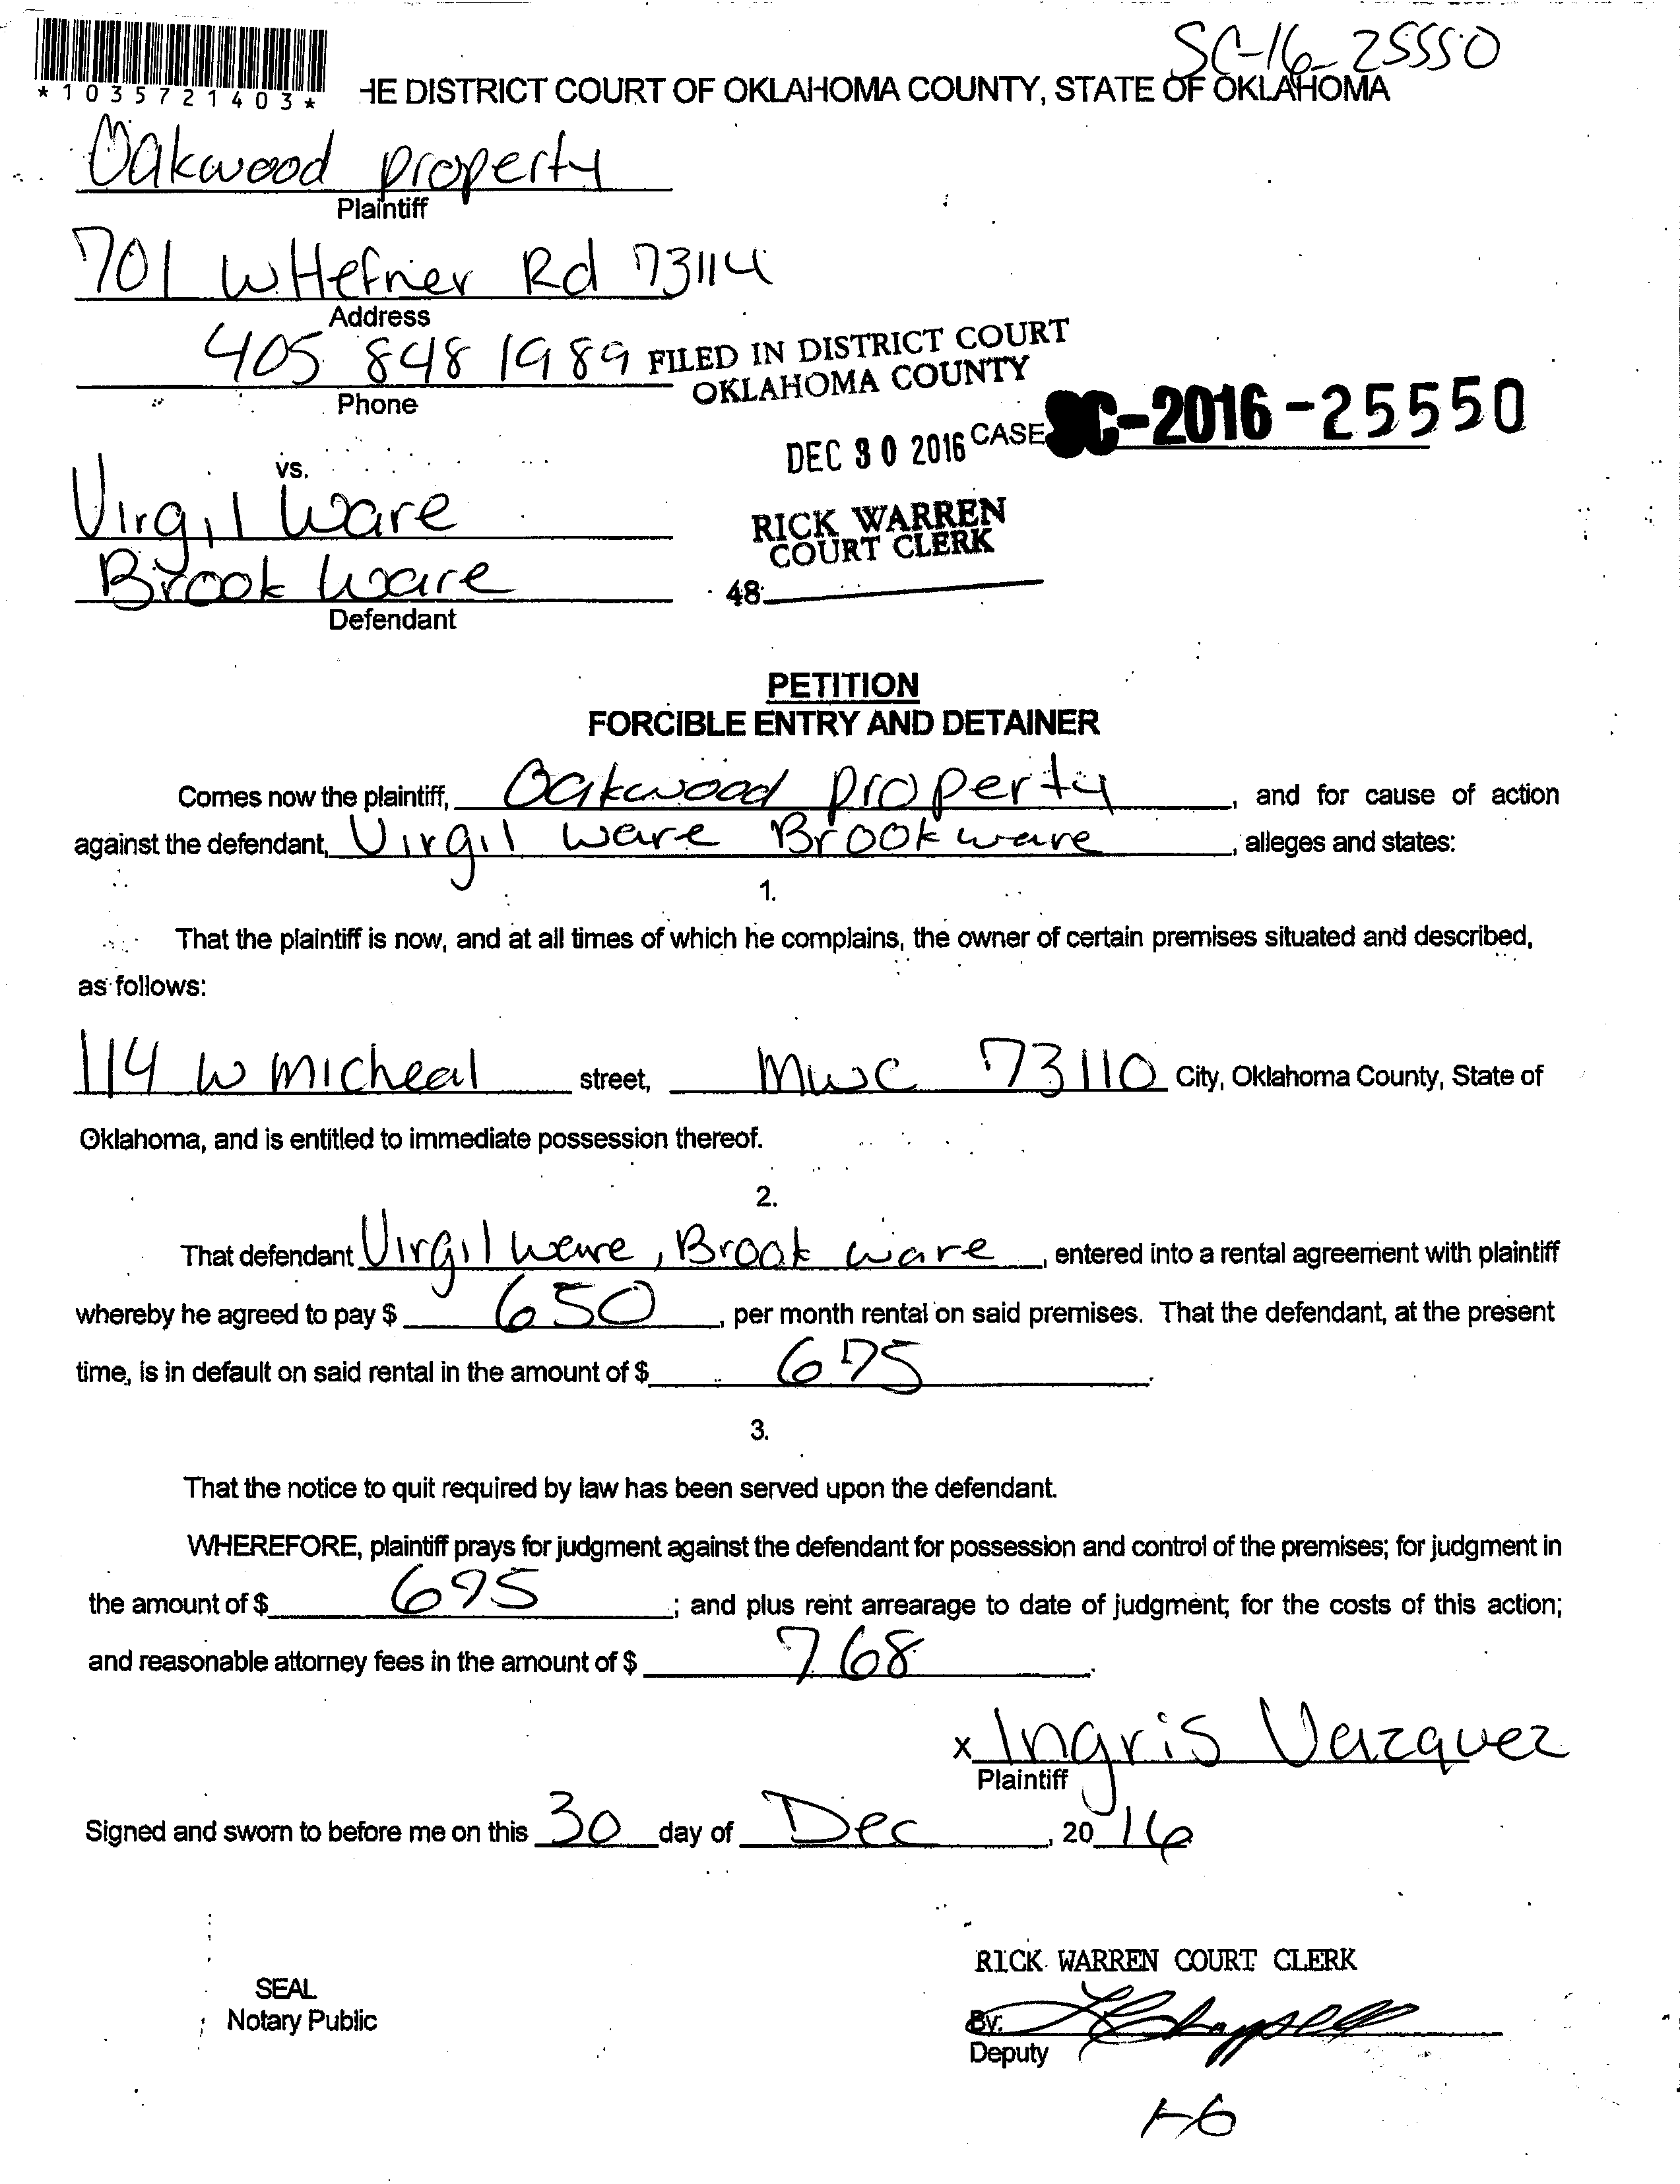 SC-16-25550
*1035721403*
HE DISTRICT COURT OF OKLAHOMA COUNTY, STATE OF OKLAHOMA
Oakwood property
Plaintiff
701 W Hefner Rd 73114
Address
405 848 1989
Phone
FILED IN DISTRICT COURT
OKLAHOMA COUNTY
DEC 30 2016
CASE SC-2016-25550
vs.
RICK WARREN
COURT CLERK
48
Virgil Ware
Brook Ware
Defendant
PETITION
FORCIBLE ENTRY AND DETAINER
Comes now the plaintiff, Oakwood property, and for cause of action
against the defendant, Virgil Ware Brook ware, alleges and states:
1.
That the plaintiff is now, and at all times of which he complains, the owner of certain premises situated and described,
as follows:
114 W Micheal street, MWC 73110 City, Oklahoma County, State of
Oklahoma, and is entitled to immediate possession thereof.
2.
That defendant Virgil Ware, Brook ware, entered into a rental agreement with plaintiff
whereby he agreed to pay $ 650, per month rental on said premises. That the defendant, at the present
time, is in default on said rental in the amount of $ 675.
3.
That the notice to quit required by law has been served upon the defendant.
WHEREFORE, plaintiff prays for judgment against the defendant for possession and control of the premises; for judgment in
the amount of $ 675; and plus rent arrearage to date of judgment; for the costs of this action;
and reasonable attorney fees in the amount of $ 768.
x Ingris Vazquez
Plaintiff
Signed and sworn to before me on this 30 day of Dec, 2016
RICK WARREN COURT CLERK
SEAL
Notary Public
By:
Deputy